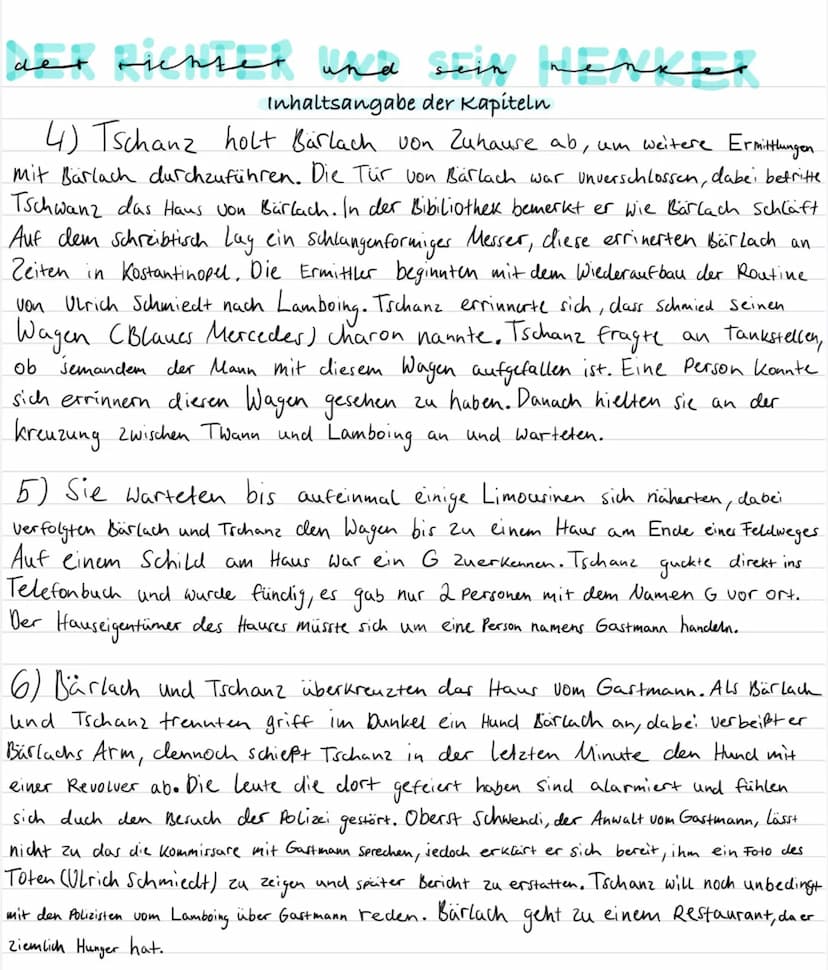 DER RiCHTER UND SEIN HENKER
der richter und sein henker
Inhaltsangabe der Kapiteln
4) Tschanz holt Bärlach von Zuhause ab, um weitere Ermittlungen
mit Bärlach durchzuführen. Die Tür von Bärlach war unverschlossen, dabei betritte
Tschwanz das Haus von Bärlach. In der Bibiliothek bemerkt er wie Bärlach schläft
Auf dem schreibtisch Lag ein schlangenformiges Messer, diese errinerten Bärlach an
Zeiten in Kostantinopel. Die Ermittler beginnten mit dem Wiederaufbau der Routine
von Ulrich Schmiedt nach Lamboing. Tschanz errinnerte sich, dass schmied seinen
Wagen (Blaues Mercedes) charon nannte. Tschanz fragte an Tankstellen,
ob jemandem der Mann mit diesem Wagen aufgefallen ist. Eine Person konnte
sich errinnern diesen Wagen gesehen zu haben. Danach hielten sie an der
kreuzung zwischen Twann und Lamboing an und warteten.
5) Sie warteten bis aufeinmal einige Limousinen sich näherten, dabei
verfolgten Bärlach und Tschanz den Wagen bis zu einem Haus am Ende eines Feldweges
Auf einem Schild am Haus war ein G zuerkennen. Tschanz guckte direkt ins
Telefonbuch und wurde fündig, es gab nur 2 Personen mit dem Namen G vor ort.
Der Hauseigentümer des Hauses müsste sich um eine Person namens Gastmann handeln.
6) Bärlach und Tschanz überkreuzten das Haus vom Gastmann. Als Bärlach
und Tschanz trennten griff im Dunkel ein Hund Bärlach an, dabei verbeißt er
Bärlachs Arm, dennoch schießt Tschanz in der letzten Minute den Hund mit
einer Revolver ab. Die leute die dort gefeiert haben sind alarmiert und fühlen
sich duch den Besuch der Polizei gestört. Oberst Schwendi, der Anwalt vom Gastmann, lässt
nicht zu das die kommissare mit Gastmann sprechen, jedoch erklärt er sich bereit, ihm ein Foto des
Toten (Ulrich Schmiedt) zu zeigen und später Bericht zu erstatten. Tschanz will noch unbedingt
mit den Polizisten vom Lamboing über Gastmann reden. Bärlach geht zu einem Restaurant, da er
ziemlich Hunger hat.